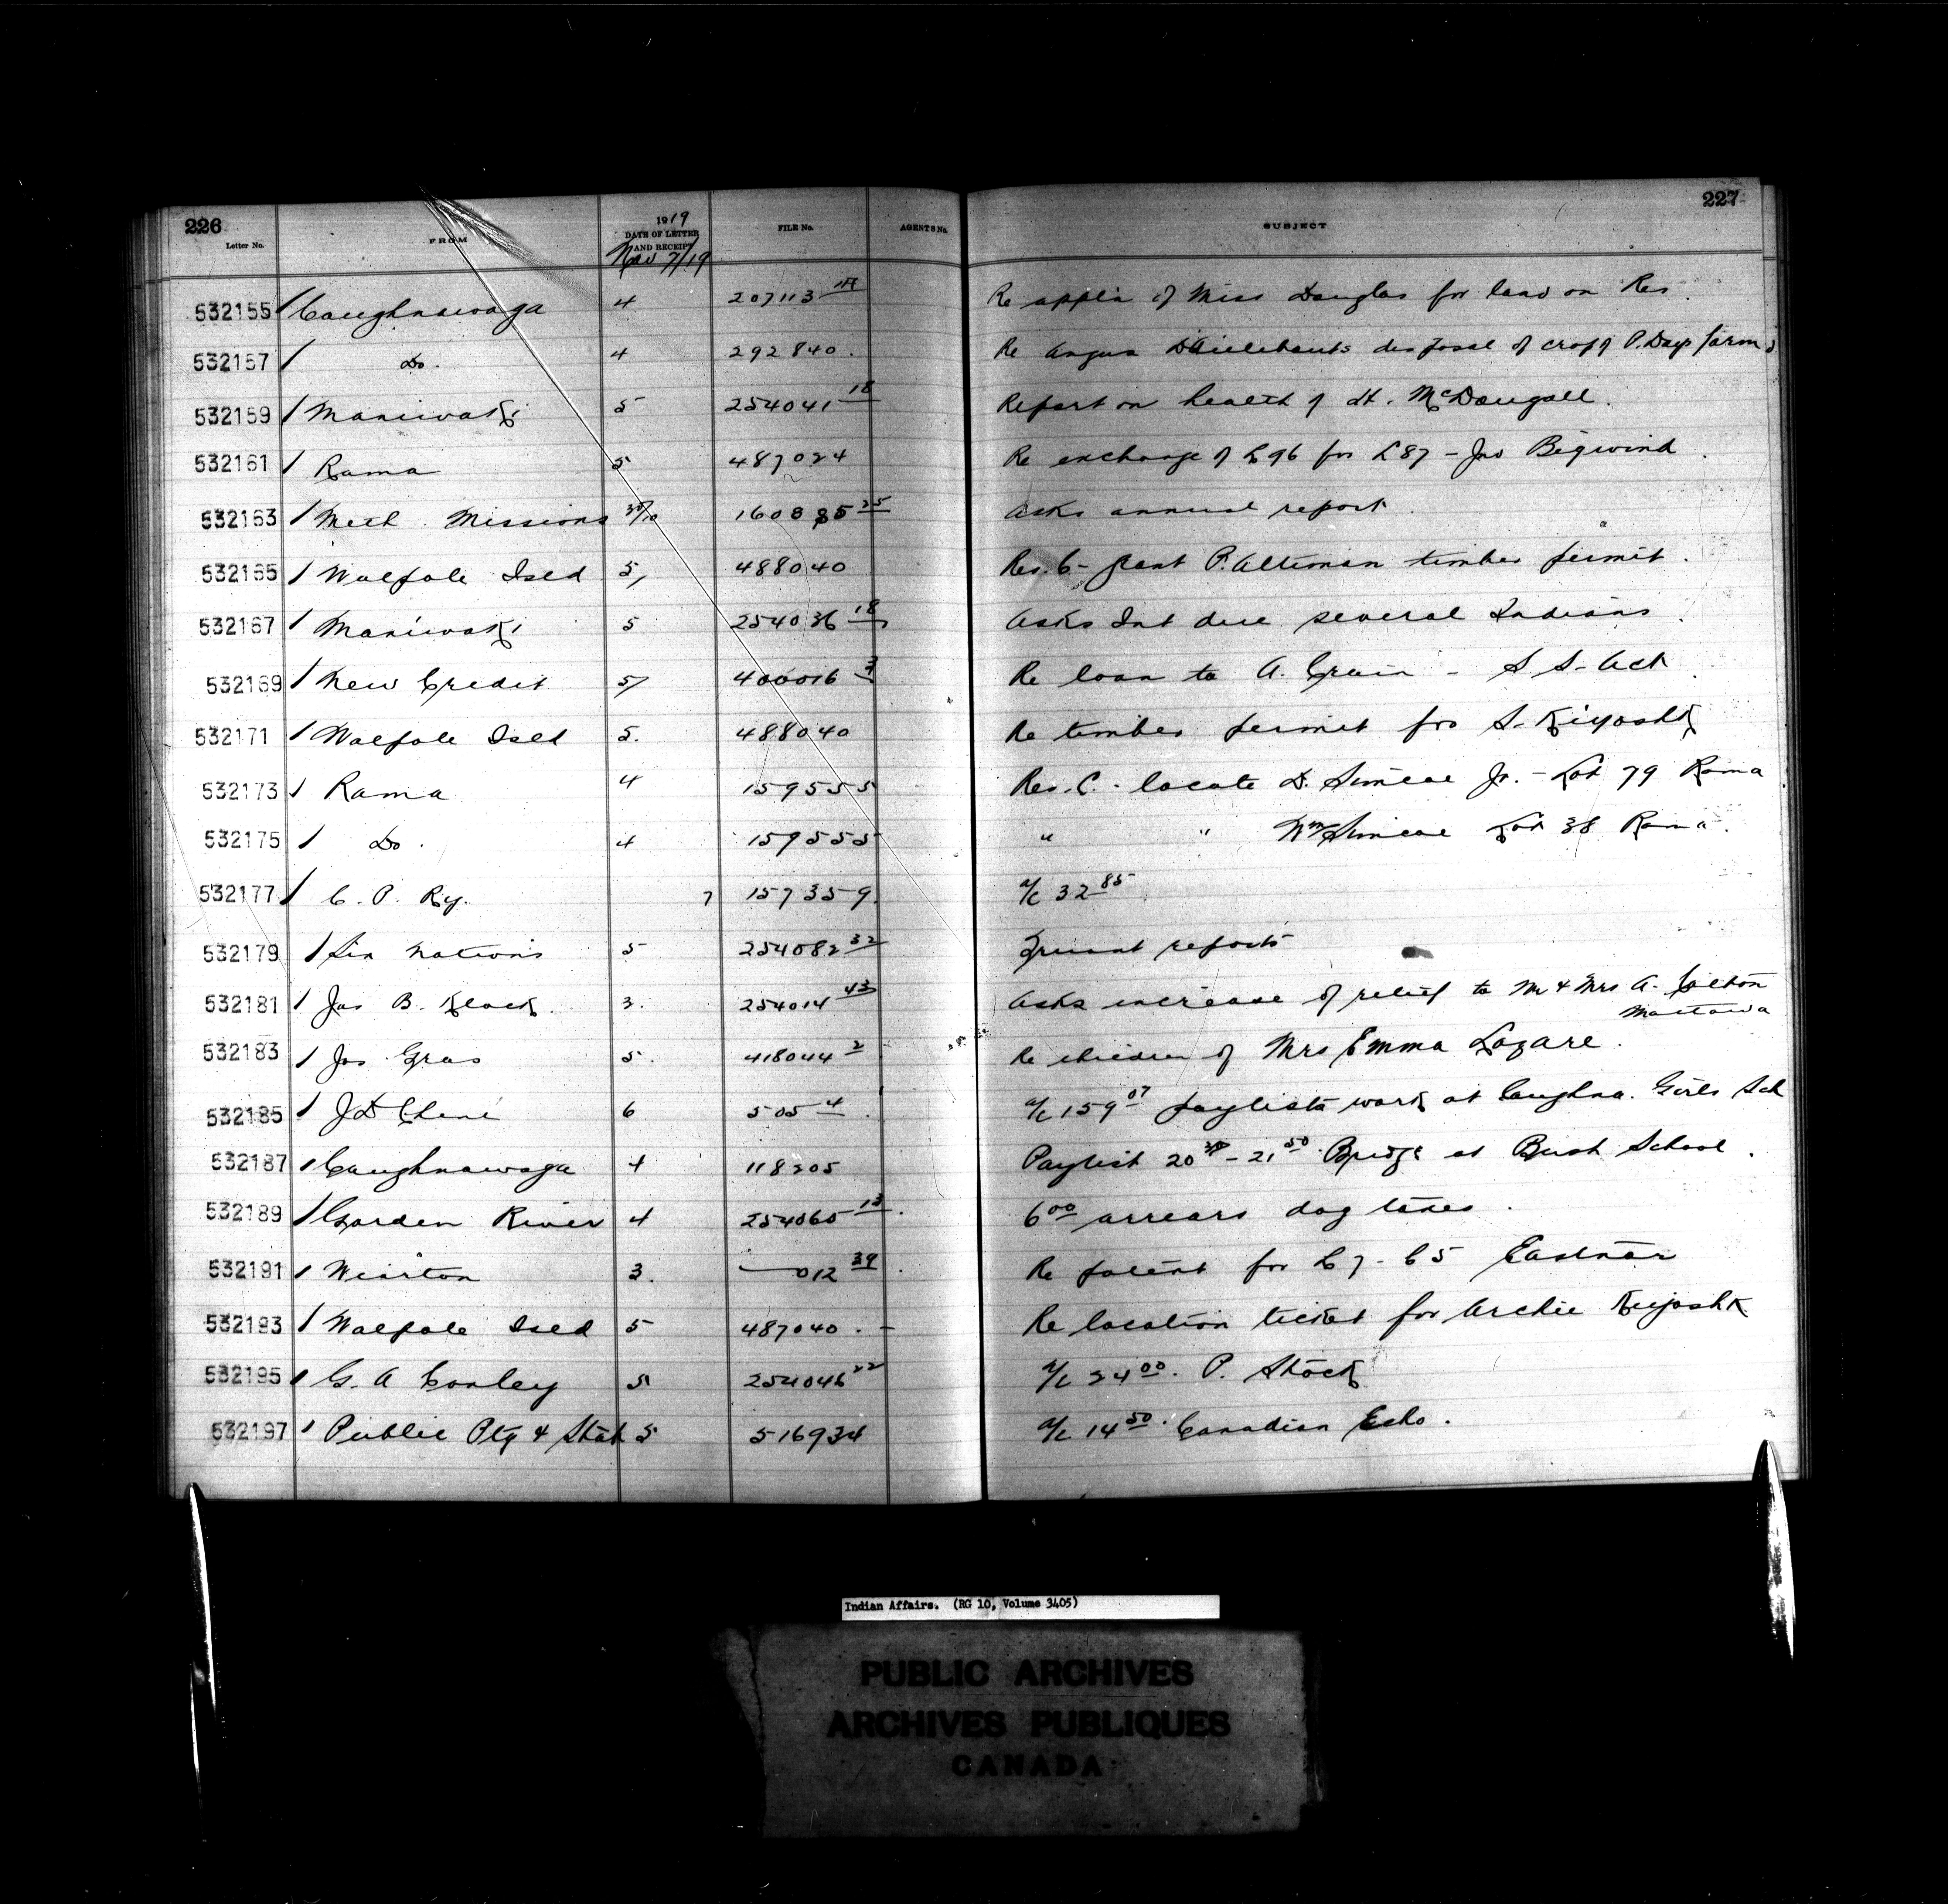 226
227
Letter No. FROM 1919 DATE OF LETTER AND RECEIPT FILE No. AGENT'S No. SUBJECT
Nov 7/19
532155 1 Caughnawaga 4 207113 Re appl'n of Miss Douglas for land on Res.
532157 1 Do. 4 292840. Re Angus D'Aillebouts disposal of crop of P. Days farm
532159 1 Maniwaki 5 254041 18 Report on health of McDougall.
532161 1 Rama 5 487024 Re exchange of L96 for L87 - Jno Bigwind
532163 1 Meth. Missions 30/10 160885 25 Asks annual report
532165 1 Walpole Isld 5, 488040 Res. C- grant P. Altiman timber permit.
532167 1 Maniwaki 5 254036 18 Asks Int due several Indians
532169 1 New Credit 5 400016 3 Re loan to A. Crain - S S- Act
532171 1 Walpole Isld 5. 488040 Re timber permit for S. Kiyoshk
532173 1 Rama 4 159555 Res. C. - locate D. Simcoe Jr. - Lot 79 Rama
532175 1 Do. 4 159555 " " Wm Simcoe Lot 38 Rama.
532177 1 C. P. Ry. 7 157359 a/c 32 85
532179 1 Six Nations 5 254082 32 Truant reports
532181 1 Jas B. Klock. 3. 254014 43 Asks increase of relief to Mr & Mrs A.
Mattawa
532183 1 Jos Gras 5. 418044 2 Re children of Mrs Emma Lazare.
532185 1 J D Chene 6 505 4 a/c 159 07 paylists work at Caughna. Girls Sch
532187 1 Caughnawaga 4 118205 Paylist 20 - 21 50 Bridge at Bush School.
532189 1 Garden River 4 254065 13. 6 00 arrears dog taxes.
532191 1 Wiarton 3. — 012 39. Re patent for L 7 - C 5 Eastnor
532193 1 Walpole Isld 5 487040. - Re location ticket for Archie Kiyoshk
532195 1 G. A Conley 5 254046 22 a/c 24 00. P. Shock
532197 1 Public Ptg & Stat 5 516934 a/c 14 50. Canadian Echo.
Indian Affairs. (RG 10, Volume 3405)
PUBLIC ARCHIVES
ARCHIVES PUBLIQUES
CANADA